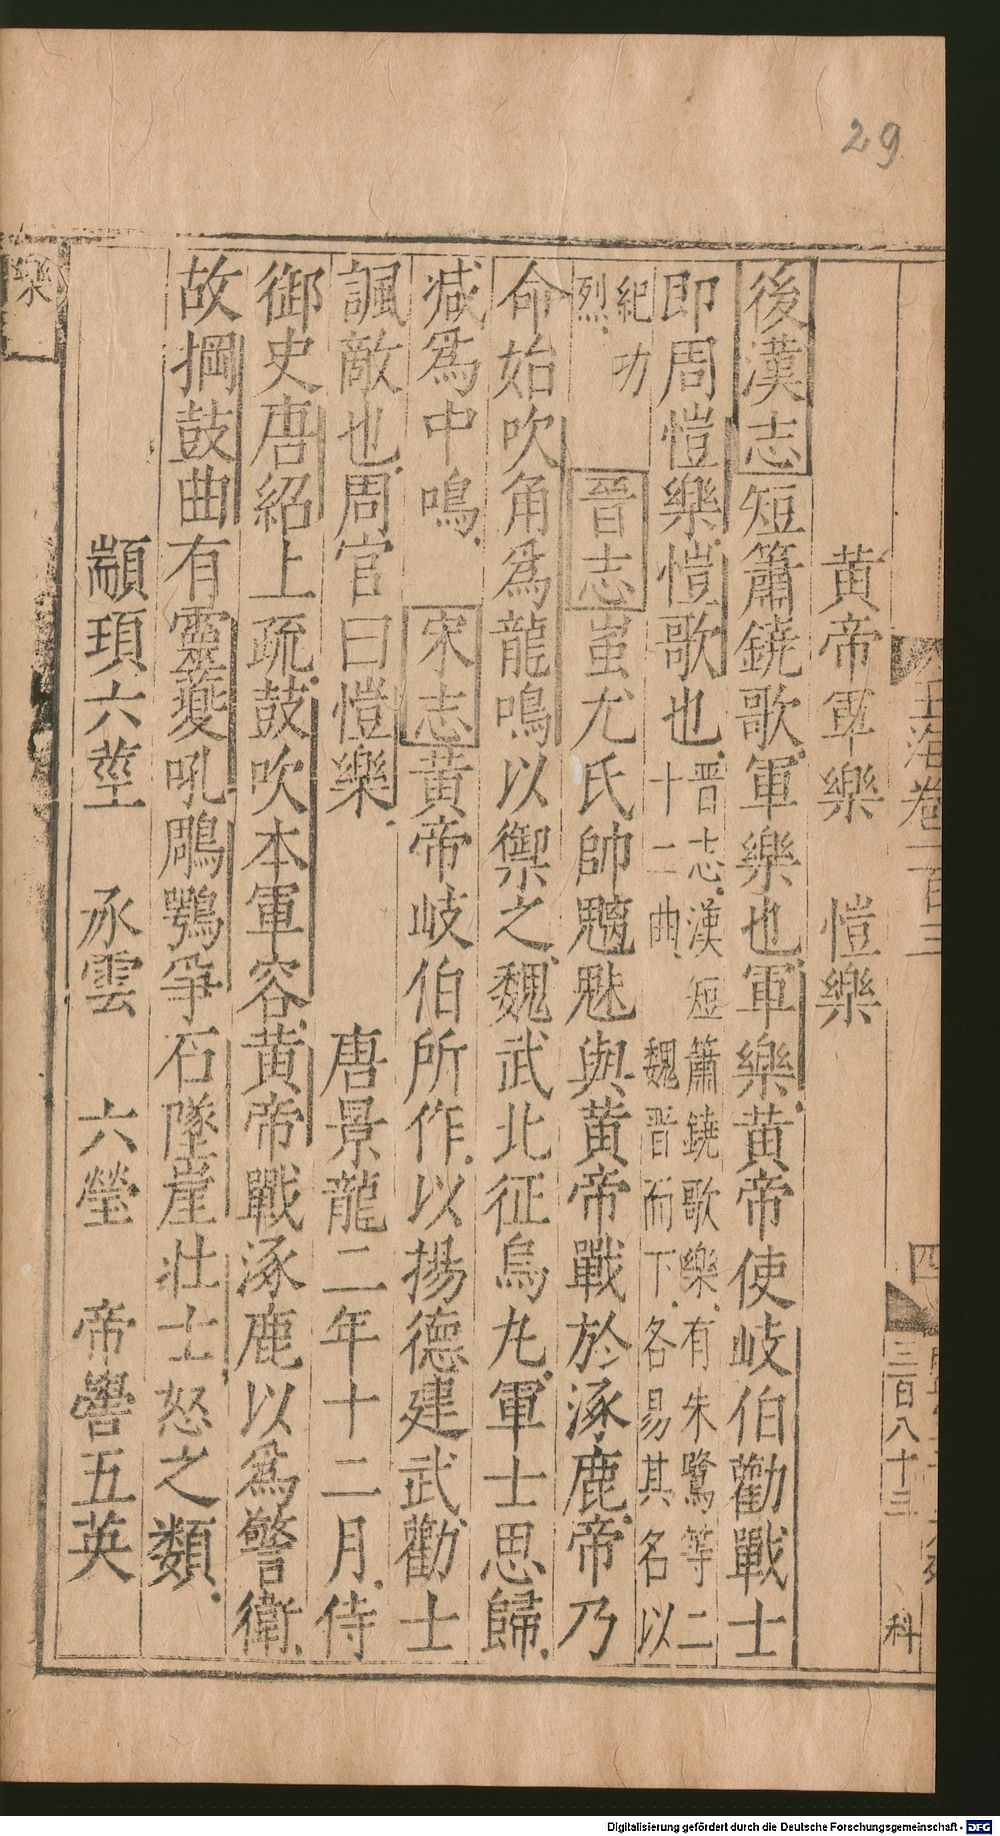 29
玉海卷一百三
四
三百八十三
科
黃帝軍樂　愷樂
後漢志短簫鐃歌軍樂也軍樂黃帝使岐伯勸戰士
即周愷樂愷歌也晋志漢短簫鐃歌樂有朱鷺等二
十二曲魏晋而下各易其名以
紀功
烈　晉志蚩尤氏帥魑魅與黃帝戰於涿鹿帝乃
命始吹角爲龍鳴以禦之魏武北征烏丸軍士思歸
減爲中鳴　宋志黃帝岐伯所作以揚德建武勸士
諷敵也周官曰愷樂　唐景龍二年十二月侍
御史唐紹上疏鼓吹本軍容黃帝戰涿鹿以爲警衛
故掆鼓曲有靈夔吼鵰鶚爭石墜崖壯士怒之類
顓頊六莖　承雲　六瑩　帝嚳五英
樂
Digitalisierung gefördert durch die Deutsche Forschungsgemeinschaft - DFG